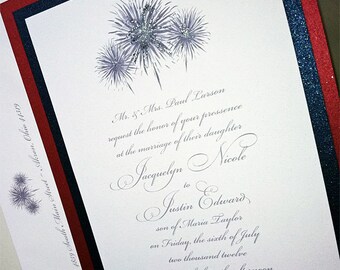 Mr. & Mrs. Paul Larson
request the honor of your presence
at the marriage of their daughter
Jacquelyn Nicole
to
Justin Edward
son of Maria Taylor
on Friday, the sixth of July
two thousand twelve
South Main Street ~ Akron, Ohio